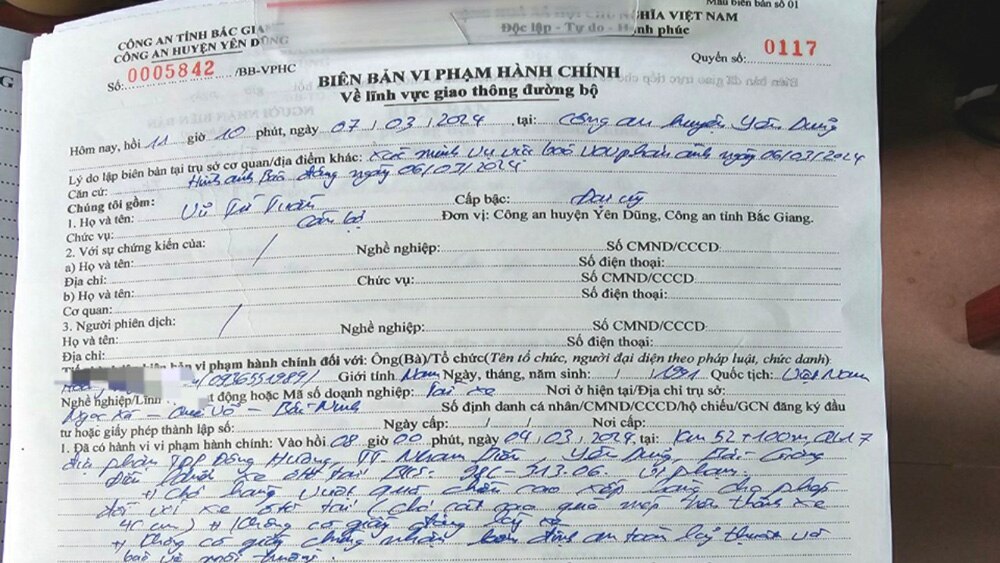 Mẫu biên bản số 01
CÔNG AN TỈNH BẮC GIA
NGHĨA VIỆT NAM
CÔNG AN HUYỆN YÊN DŨNG
Độc lập - Tự do - Hạnh phúc
Số: 0005842 /BB-VPHC
Quyển số: 0117
BIÊN BẢN VI PHẠM HÀNH CHÍNH
Về lĩnh vực giao thông đường bộ
Hôm nay, hồi 11 giờ 10 phút, ngày 07/03/2024 tại: Công an huyện Yên Dũng
Lý do lập biên bản tại trụ sở cơ quan/địa điểm khác: Xác minh vụ việc báo VOV phản ánh ngày 06/03/2024
Căn cứ: Hình ảnh Báo đăng ngày 06/03/2024
Chúng tôi gồm:
1. Họ và tên: Vũ Tuấn Cấp bậc: Đại úy
Chức vụ: Cán bộ Đơn vị: Công an huyện Yên Dũng, Công an tỉnh Bắc Giang.
2. Với sự chứng kiến của:
a) Họ và tên: / Nghề nghiệp: Số CMND/CCCD
Địa chỉ: Số điện thoại:
b) Họ và tên: Chức vụ: Số CMND/CCCD
Cơ quan: Số điện thoại:
3. Người phiên dịch:
Họ và tên: / Nghề nghiệp: Số CMND/CCCD
Địa chỉ: Số điện thoại:
bản vi phạm hành chính đối với: Ông(Bà)/Tổ chức(Tên tổ chức, người đại diện theo pháp luật, chức danh)
(0936551989) Giới tính Nam Ngày, tháng, năm sinh: / /1991 Quốc tịch: Việt Nam
Nghề nghiệp/Lĩnh t động hoặc Mã số doanh nghiệp: Lái xe Nơi ở hiện tại/Địa chỉ trụ sở:
Ngọc Xá - Quế Võ - Bắc Ninh Số định danh cá nhân/CMND/CCCD/hộ chiếu/GCN đăng ký đầu
tư hoặc giấy phép thành lập số: Ngày cấp: / / Nơi cấp:
1. Đã có hành vi vi phạm hành chính: Vào hồi 08 giờ 00 phút, ngày 04/03/2024, tại: Km 52+100m QL17
địa phận TDP Đông Hương, TT. Nham Biền, Yên Dũng, Bắc Giang
điều khiển xe ôtô tải BKS: 313.06 vi phạm:
+) Chở hàng vượt quá chiều cao xếp hàng cho phép
đối với xe ôtô tải (chở cát cao quá mép trên thành xe
40cm) +) Không có giấy đăng ký xe
+) Không có giấy chứng nhận kiểm định an toàn kỹ thuật và
bảo vệ môi trường